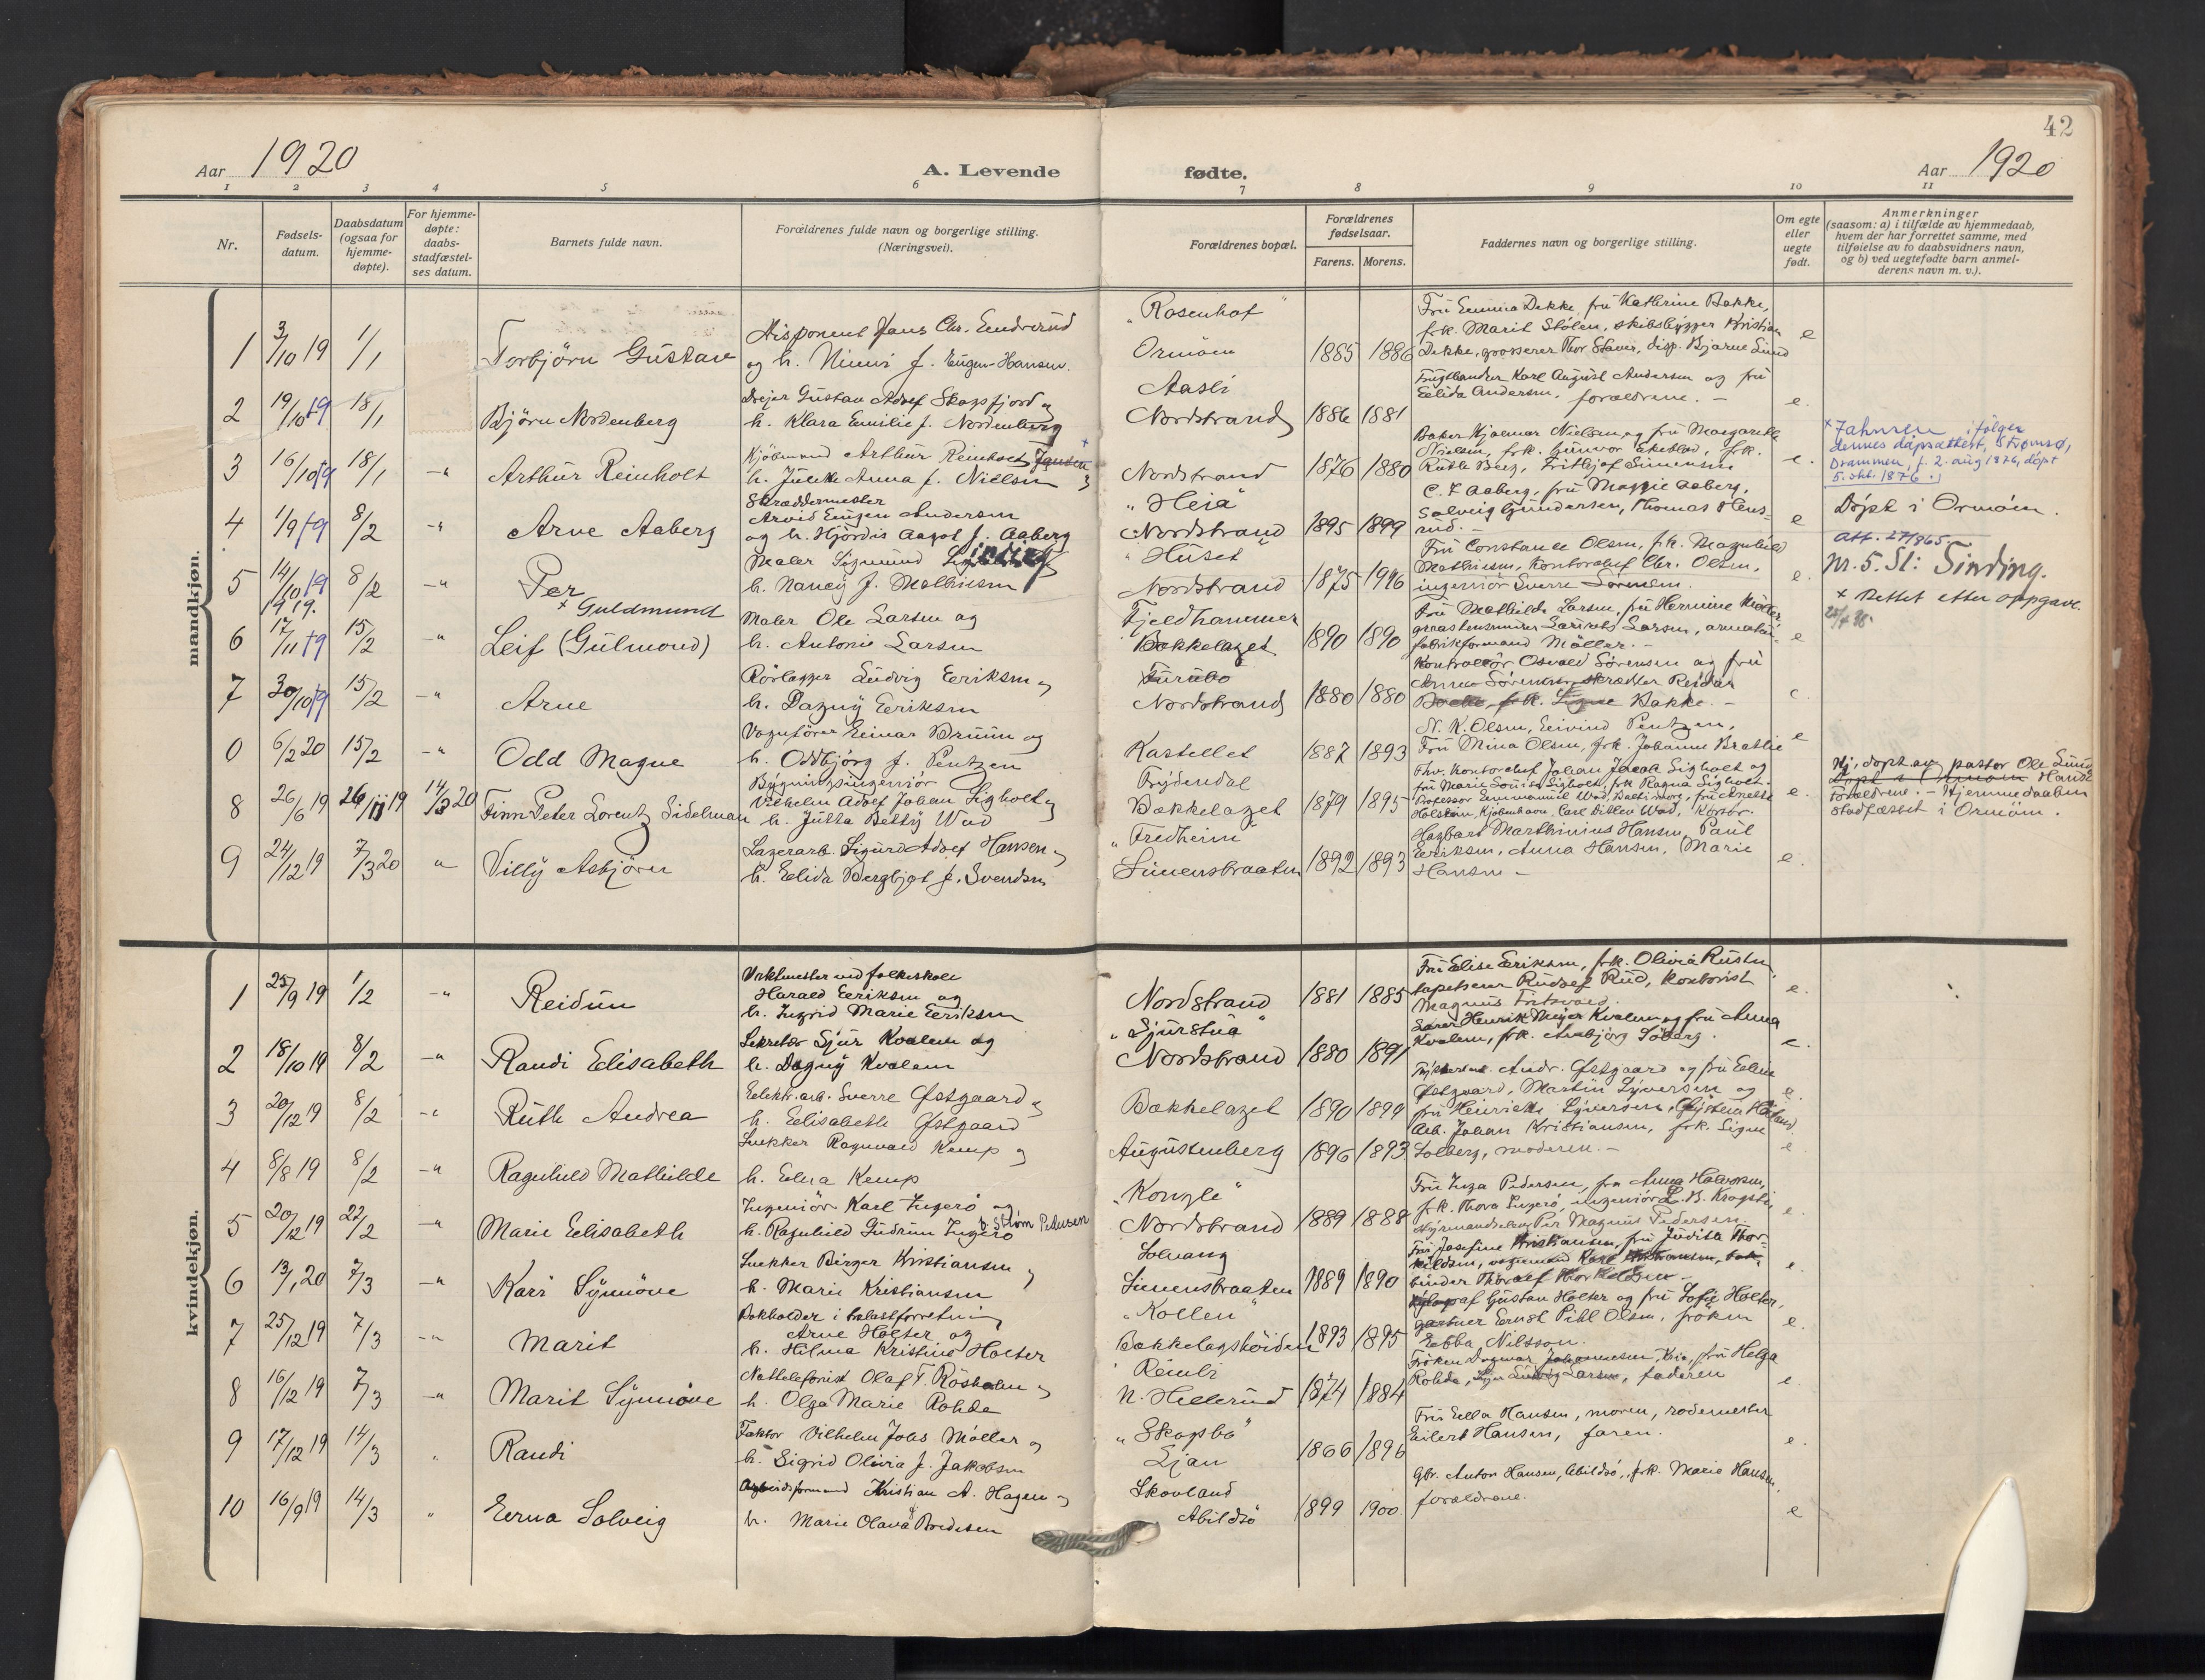 42
Aar 1920
A. Levende fødte.
Aar 1920
1 2 3 4 5 6 7 8 9 10 11
Nr.
Fødsels-
datum.
Daabsdatum
(ogsaa for
hjemme-
døpte).
For hjemme-
døpte:
daabs-
stadfæstel-
ses datum.
Barnets fulde navn.
Forældrenes fulde navn og borgerlige stilling.
(Næringsvei).
Forældrenes bopæl.
Forældrenes
fødselsaar.
Farens. Morens.
Faddernes navn og borgerlige stilling.
Om egte
eller
uegte
født.
Anmerkninger
(saasom: a) i tilfælde av hjemmedaab,
hvem der har forrettet samme, med
tilføielse av to daabsvidners navn,
og b) ved uegtefødte barn anmel-
derens navn m. v.).
mandkjøn.
1 3/10 19 1/1 Torbjörn Gustav
Disponent Hans Chr. Endrerud
og h. Nimi f. Eugen-Hansen.
"Rosenhof"
Ormöen 1885 1886
Fru Emma Dekke, fru Kathrine Bakke,
frk. Marit Stölen, skibsbygger Kristian
Dekke, grosserer Thor Staver, disp. Bjarne Lund
e
2 19/10 19 18/1 Björn Nordenberg
Drejer Gustav Adolf Skapfjord og
h. Klara Emilie f. Nordenberg
Aasli
Nordstrand 1886 1881
Frugthandler Karl August Andersen og fru
Elida Andersen, forældrene. -
e.
3 16/10 19 18/1 -"- Arthur Reinholt
Kjöbmand Arthur Reinholt Jansen x
h. Julie Anna f. Nielsen
Nordstrand 1876 1880
Baker Hjalmar Nielsen og fru Margarethe
Nielsen, frk. Gunvor Ekeblad, frk.
Ruth Berg, Frithjof Simensen
e.
x Jahnsen ifølge
dennes dåpsattest, Strømsø,
Drammen, f. 2. aug 1876, døpt
5. okt. 1876.
4 1/9 19 8/2 -"- Arne Aaberg
Skræddermester
Arvid Eugen Andersen
og h. Hjördis Aagot f. Aaberg
"Heia"
Nordstrand 1895 1899
C. F. Aaberg, fru Maggie Aaberg,
Solveig Gundersen, Thomas Hens-
rud. -
e
Döpt i Ormöen.
5 14/10 19 8/2 -"- Per
1919.
Maler Sigmund Sinding
h. Nancy f. Mathiesen
"Huset"
Nordstrand 1875
Fru Constance Olsen, frk. Magnhild
Mathiesen, kontorchef Chr. Olsen,
ingeniör Sverre Sörensen.
e.
Att. 27/865.
Nr. 5. Sl: Sinding.
6 17/11 19 15/2 -"- Leif (Gulmond)
x Guldmund
Maler Ole Larsen og
h. Antonie Larsen
Fjeldhammer
Bækkelaget 1890 1890
Fru Mathilde Larsen, fru Hermine Möller,
Larsen,
fabrikformand Möller. -
e
+ Rettet etter oppgave.
7 30/10 19 15/2 -"- Arne
Rörlægger Ludvig Eriksen og
h. Dagny Eriksen
Furubo
Nordstrand 1880 1880
Kontrollör Osvald Sörensen og fru
Anna Sörensen, skrædder Reidar
Bakke, frk. Signe Bakke. -
e.
0 6/2 20 15/2 -"- Odd Magne
Vognfører Einar Bruun og
h. Oddbjörg f. Pentzen
Kastellet 1887 1893
N. K. Olsen, Eivind Pentzen,
Fru Mina Olsen, frk. Johanne Bratlie
e
8 26/6 19 26/11 19 14/3 20 Finn Peter Lorentz Sidelman
Bygningsingeniör
Vilhelm Adolf Johan Sigholt og
h. Jutta Betty Wad
Frydendal
Bækkelaget 1879 1895
Fhv. kontorchef Johan Jacob Sigholt og
fru Marie Louise Sigholt, frk. Ragna Sigholt.
Professor Emmanuel Wad, Baltimore, fru Anette
Holstein, Kjöbenhavn, Carl Ditlev Wad, Korsör.
e.
Hj. döpt av pastor Ole Lund
Döpt i Ormöen
Forældrene. - Hjemmedaaben
stadfæstet i Ormöen.
9 24/12 19 7/3 20 " Villy Asbjörn
Lagerarb. Sigurd Adolf Hansen og
h. Elida Bergljot f. Svendsen
"Fredheim"
Simensbraaten 1892 1893
Hagbart Marthinius Hansen, Paul
Eriksen, Anna Hansen, Marie
Hansen -
e.
kvindekjøn.
1 25/9 19 1/2 -"- Reidun
Vaktmester ved folkeskole
Harald Eriksen og
h. Ingrid Marie Eriksen
Nordstrand 1881 1885
Fru Elise Eriksen, frk. Olivia Rusten,
tapetserer Rudolf Rud, kontorist
Magnus Fritzvold.
e.
2 18/10 19 8/2 -"- Randi Elisabeth
Sekretær Sjur Kvalem og
h. Dagny Kvalem
"Sjurstua"
Nordstrand 1880 1891
Lærer Henrik Meyer Kvalem og fru Anna
Kvalem, frk. Arnbjörg Söberg.
e.
3 20/12 19 8/2 -"- Ruth Andrea
Elektr. arb. Sverre Østgaard og
h. Elisabeth Østgaard
Bækkelaget 1890 1899
Andr. Østgaard og fru Eline
Østgaard, Martin Syversen og
fru Henriette Syversen,
e.
4 8/8 19 8/2 -"- Ragnhild Mathilde
Snekker Ragnvald Kemp og
h. Edna Kemp
Augustenberg 1896 1893
Arb. Johan Kristiansen, frk. Signe
Solberg, moderen. -
e
5 20/12 19 22/2 -"- Marie Elisabeth
Ingeniör Karl Ingerö og
h. Ragnhild Gudrun Ingerö b. Strøm Petersen
"Kongle"
Nordstrand 1889 1888
Fru Inga Pedersen, fru Anna Halvorsen,
frk. Thora Ingerö, ingeniör L. B. Krogstie
Styrmandselev Per Magnus Pedersen.
e.
6 13/1 20 7/3 -"- Kari Synnöve
Snekker Birger Kristiansen og
h. Marie Kristiansen
Solvang
Simensbraaten 1889 1890
Fru Josefine Kristiansen, fru Judith Thor-
kildsen, vognmand Karl Kristiansen, bok-
binder Thoralf Thorkildsen -
e.
7 25/12 19 7/3 -"- Marit
Bokholder i trælastforretning
Arne Holter og
h. Hilma Kristine Holter
"Kollen"
Bækkelagshöiden 1893 1895
Xylograf Gustav Holter og fru Sofie Holter,
gartner Ernst Pihl Olsen, fröken
Ebba Nilsson.
e.
8 16/12 19 7/3 -"- Marit Synnöve
Nattelefonist Olaf T. Rösholm og
h. Olga Marie Rohde
N. Hellerud 1874 1884
Fröken Dagmar Johannesen, Kria, fru Helga
Rohde, Ludvig Larsen, faderen
e.
9 17/12 19 14/3 " Randi
Faktor Vilhelm Johs Möller og
h. Sigrid Olivia f. Jakobsen
"Skogsbo"
Ljan 1866 1896
Fru Ella Hansen, moren, rodemester
Eilert Hansen, faren.
e.
10 16/9 19 14/3 " Erna Solveig
Arbeidsformand Kristian A. Hagen og
h. Marie Olava Bredesen
Skovland
Abildsö 1899 1900.
Gbr. Anton Hansen, Abildsö, frk. Marie Hansen,
forældrene.
e